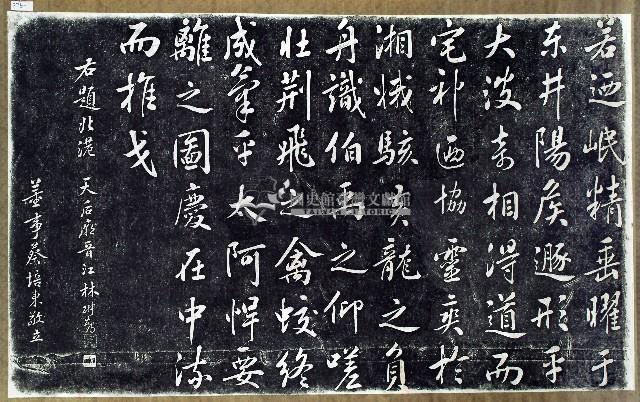 若迺岷精垂曜于
东井陽侯遯形乎
大波奇相得道而
宅神迺協靈爽於
湘娥駭黃龍之負
舟識伯禹之仰嗟
壯荊飛之禽蛟終
成氣乎太阿悍要
離之圖慶在中流
而推戈
右題北港 天后廟晉江林
董事蔡培東敬立
國史館臺灣文獻館